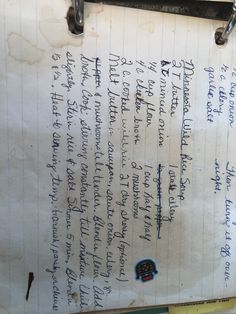 cup onion
½ c. celery
garlic salt
Then turn it off over
night
Minnesota Wild Rice Soup
2 T butter 1 stalk celery
minced onion
¼ cup flour 1 cup half & half
c chicken broth 2 mushrooms
2 c cooked wild rice 2 T dry sherry (optional)
Melt butter in saucepan, saute onion, celery, &
mushrooms until tender. Blend in flour. Add
broth. Cook, stirring constantly till mixture
slightly. Stir in rice & salt. Simmer 5 min, Blend in
½ & ½. Heat to serving temp. Garnish/parsley,